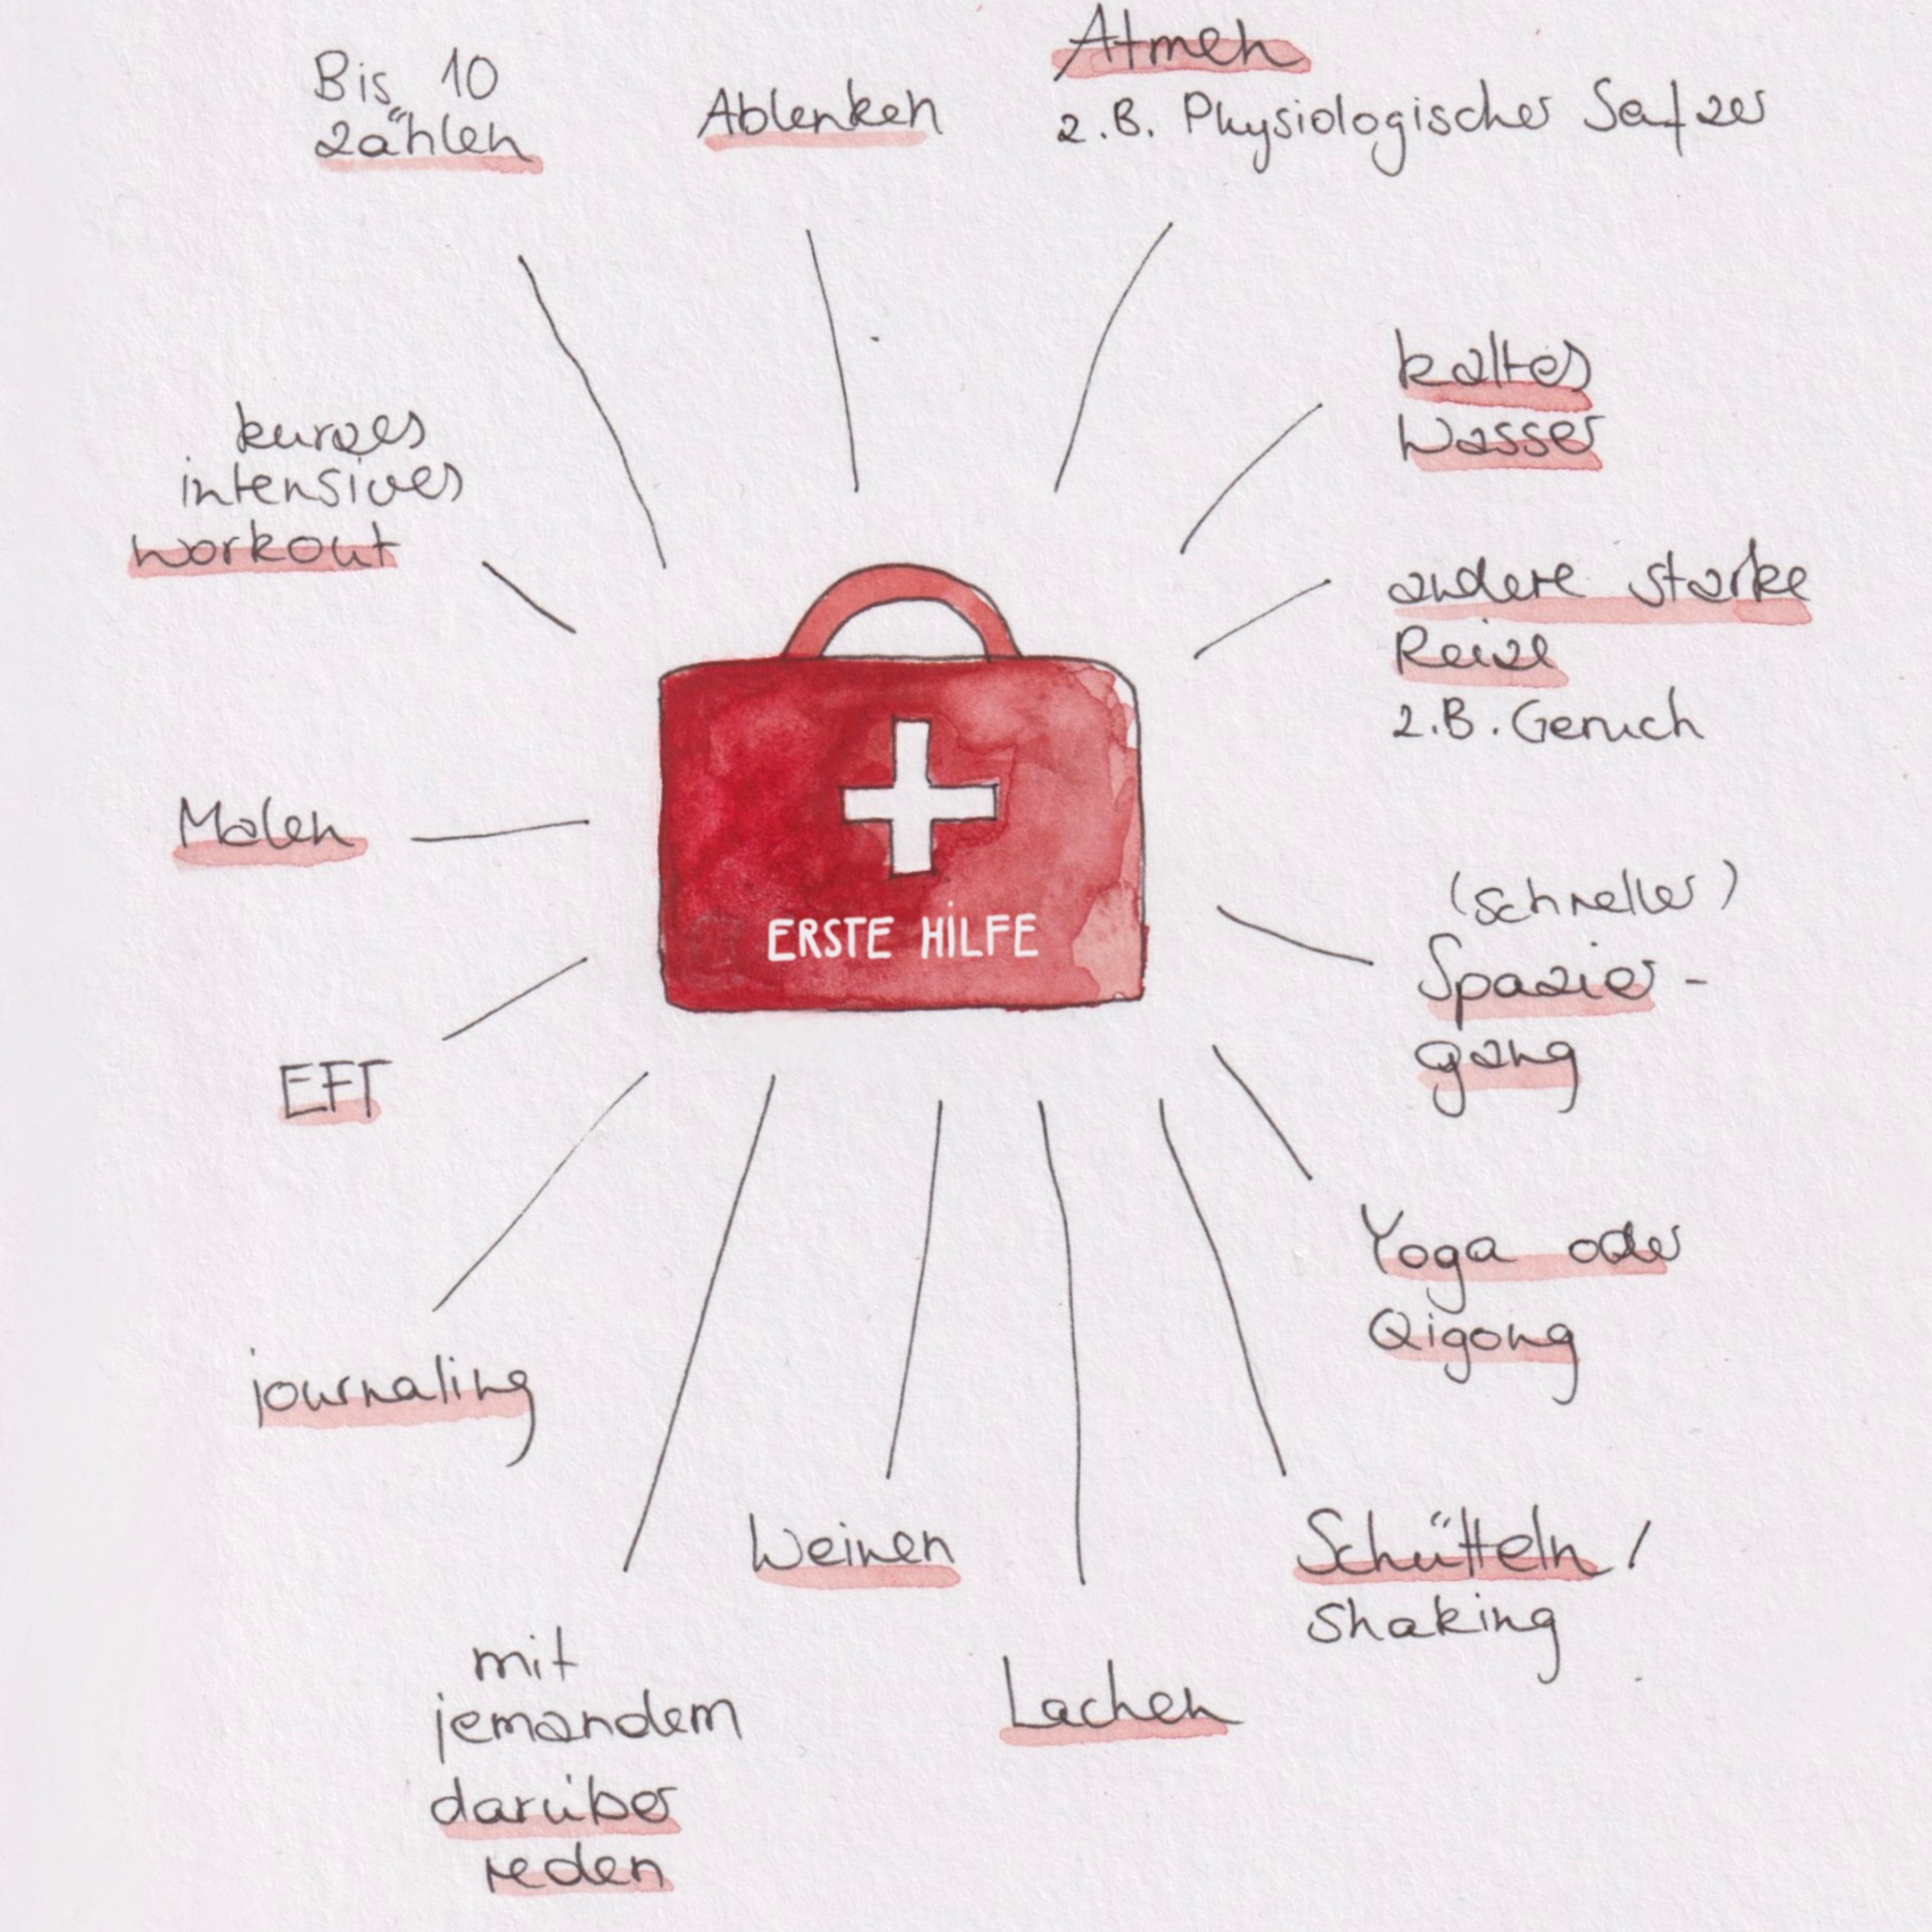 Bis 10
zählen
Ablenken
Atmen
z.B. Physiologischer Seufzer
kaltes
Wasser
andere starke
Reize
z.B. Geruch
(schneller)
Spazier-
gang
Yoga oder
Qigong
Schütteln /
Shaking
Lachen
Weinen
mit
jemandem
darüber
reden
journaling
EFT
Malen
kurzes
intensives
workout
ERSTE HILFE